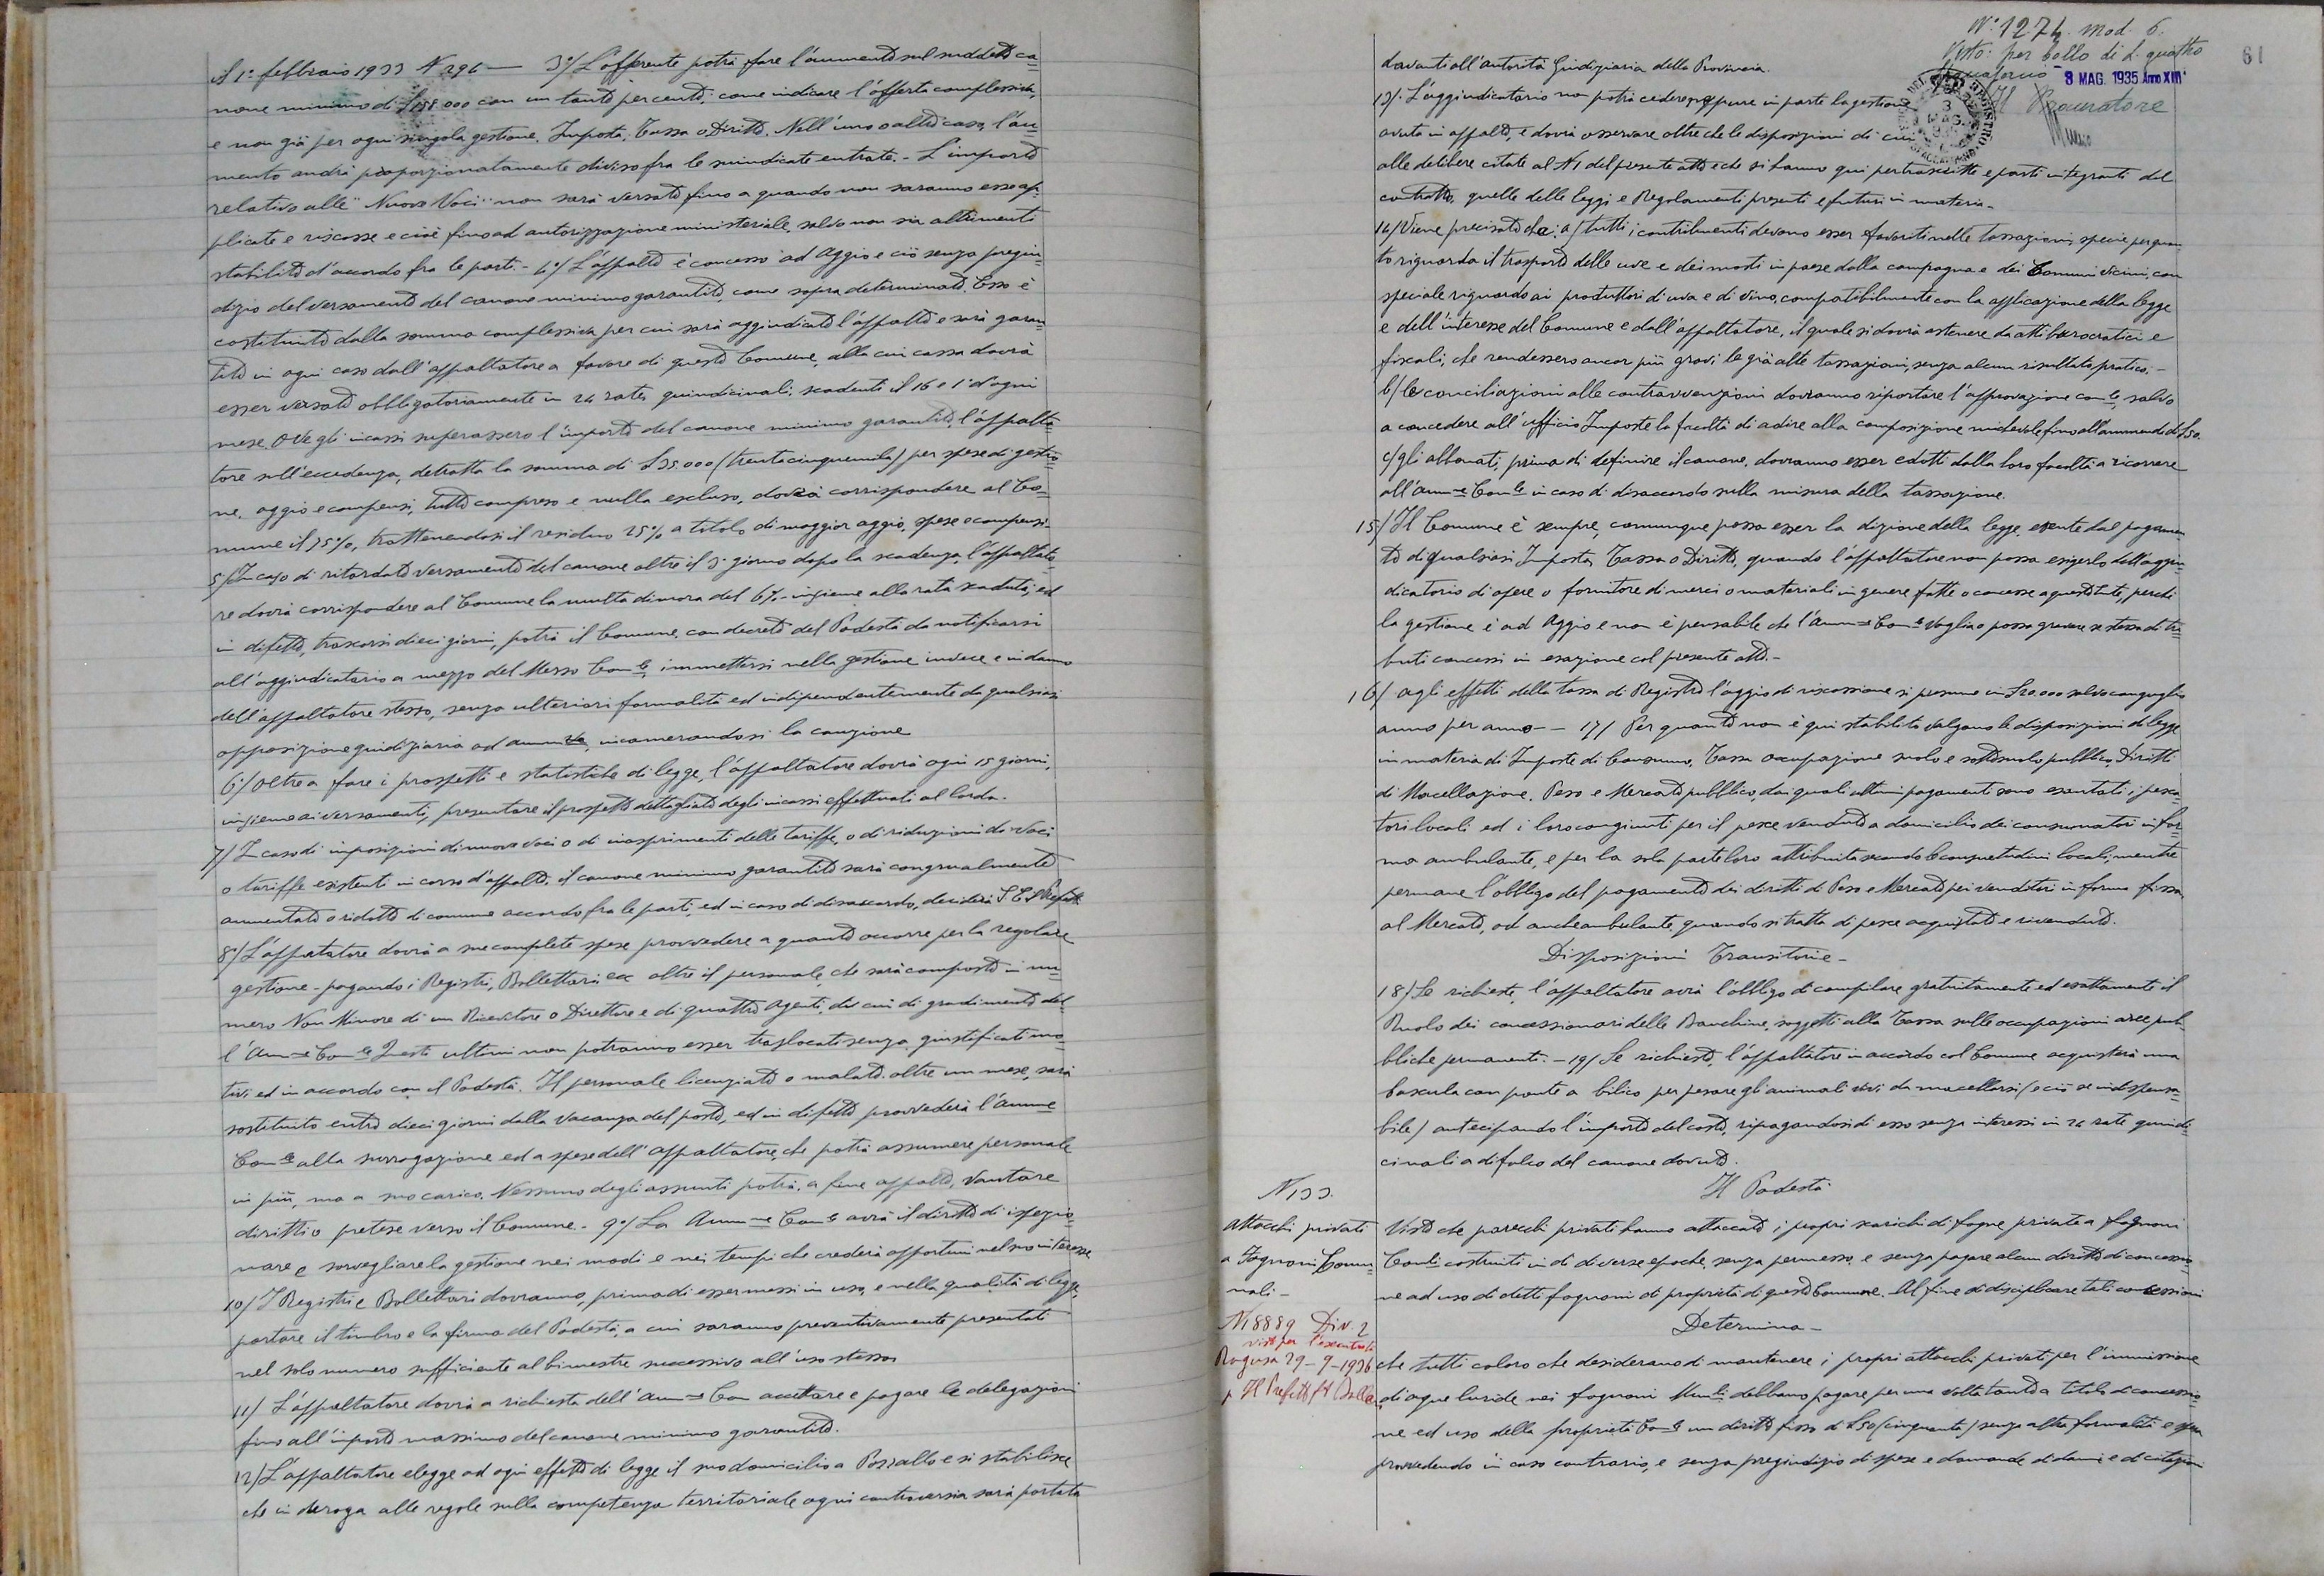 il 1° febbraio 1933 N 296 — 3°/ L'offerente potrà fare l'aumento sul suddetto ca=
none minimo di £ 158.000 con un tanto per cento, come indicare l'offerta complessiva,
e non già per ogni singola gestione, Imposta, Tassa o Diritto. Nell'uno o altro caso, l'au=
mento andrà proporzionatamente diviso fra le suindicate entrate. - L'importo
relativo alle "Nuove Voci" non sarà versato fino a quando non saranno esse ap=
plicate e riscosse e cioè fino ad autorizzazione ministeriale, salvo non sia altrimenti
stabilito d'accordo fra le parti. - 4°/ L'appalto è concesso ad Aggio e ciò senza pregiu=
dizio del versamento del canone minimo garantito, come sopra determinato. Esso è
costituito dalla somma complessiva per cui sarà aggiudicato l'appalto e sarà garan=
tito in ogni caso dall'appaltatore a favore di questo Comune, alla cui cassa dovrà
esser versato obbligatoriamente in 24 rate quindicinali, scadenti il 16 e 1° d'ogni
mese. Ove gli incassi superassero l'importo del canone minimo garantito, l'appalta=
tore sull'eccedenza, detratta la somma di £ 35.000 (trentacinquemila) per spese di gestio=
ne, aggio e compensi, tutto compreso e nulla escluso, dovrà corrispondere al Co=
mune il 75%, trattenendosi il residuo 25% a titolo di maggior aggio, spese e compensi.
5°/ In caso di ritardato versamento del canone oltre il 5° giorno dopo la scadenza, l'appaltato=
re dovrà corrispondere al Comune la multa di mora del 6% - insieme alla rata scaduta; ed
in difetto, trascorsi dieci giorni, potrà il Comune, con decreto del Podestà da notificarsi
all'aggiudicatario a mezzo del Messo Com.le, immettersi nella gestione invece e in danno
dell'appaltatore stesso, senza ulteriori formalità ed indipendentemente da qualsiasi
opposizione giudiziaria od amm.va, incamerandosi la cauzione
6°/ Oltre a fare i prospetti e statistiche di legge, l'appaltatore dovrà ogni 15 giorni,
insieme ai versamenti, presentare il prospetto dettagliato degli incassi effettuati al lordo.
7/ In caso di imposizioni di nuove voci o di inasprimenti delle tariffe, o di riduzioni di voci
o tariffe esistenti in corso d'appalto, il canone minimo garantito sarà congrualmente
aumentato o ridotto di comune accordo fra le parti, ed in caso di disaccordo, deciderà S.E. il Prefetto
8°/ L'appaltatore dovrà a sue complete spese provvedere a quanto occorre per la regolare
gestione - pagando i Registri, Bollettari ecc oltre il personale, che sarà composto in nu=
mero Non Minore di un Ricevitore o Direttore e di quattro Agenti, di cui di gradimento del=
l'Amm=e Com=le Questi ultimi non potranno esser traslocati senza giustificati mo=
tivi ed in accordo con il Podestà. Il personale licenziato o malato oltre un mese, sarà
sostituito entro dieci giorni dalla vacanza del posto, ed in difetto provvederà l'Amm=e
Com=le alla surrogazione ed a spese dell'appaltatore, che potrà assumere personale
in più, ma a suo carico. Nessuno degli assunti potrà, a fine appalto, vantare
diritti o pretese verso il Comune. - 9°/ La Amm=ne Com=le avrà il diritto di ispezio=
nare e sorvegliare la gestione nei modi e nei tempi che crederà opportuni nel suo interesse
10/ I Registri e Bollettari dovranno, prima di esser messi in uso, e nella qualità di legge,
portare il timbro e la firma del Podestà, a cui saranno preventivamente presentati
nel solo numero sufficiente al bimestre successivo all'uso stesso
11/ L'appaltatore dovrà a richiesta dell'Amm=e Com accettare e pagare le delegazioni
fino all'importo massimo del canone minimo garantito.
12/ L'appaltatore elegge ad ogni effetto di legge il suo domicilio a Pozzallo e si stabilisce
che in deroga alle regole sulla competenza territoriale ogni controversia sarà portata
N° 1274 mod. 6.
Visto per bollo di L. quattro
61
3 MAG. 1935 Anno XIII°
Il Procuratore
davanti all'autorità Giudiziaria della Provincia.
13/. L'aggiudicatario non potrà cedere neppure in parte la gestione
avuta in appalto, e dovrà osservare oltre che le disposizioni di cui
alle delibere citate al N 1 del presente atto e che si hanno qui per trascritte e parti integranti del
contratto, quelle delle leggi e Regolamenti presenti e futuri in materia -
14/ Viene precisato che: a/ tutti i contribuenti devono esser favoriti nelle tassazioni, specie per quan=
to riguarda il trasporto delle uve e dei mosti in paese dalla campagna e dei Comuni vicini, con
speciale riguardo ai produttori di uva e di vino, compatibilmente con la applicazione della legge
e dell'interesse del Comune e dell'appaltatore, il quale si dovrà astenere da atti burocratici e
fiscali, che rendessero ancor più gravi le già alte tassazioni, senza alcun risultato pratico. -
b/ le conciliazioni alle contravvenzioni dovranno riportare l'approvazione com=le, salvo
a concedere all'ufficio Imposte la facoltà di adire alla composizione amichevole fino all'ammenda di £ 50.
c/ gli abbonati, prima di definire il canone, dovranno esser edotti dalla loro facoltà a ricorrere
all'Amm=e Com=le in caso di disaccordo sulla misura della tassazione.
15/ Il Comune è sempre, comunque possa esser la dizione della legge, esente dal pagamen=
to di qualsiasi, Imposta, Tassa o Diritto, quando l'appaltatore non possa esigerlo dall'aggiu=
dicatario di opere o fornitore di merci o materiali in genere fatte o concesse a questo Ente, perchè
la gestione è ad Aggio e non è pensabile che l'Amm=e Com=le voglia o possa gravare se stessa di tri=
buti concessi in esazione col presente atto. -
16/ agli effetti della tassa di Registro l'aggio di riscossione si presume in £ 20.000 salvo conguaglio
anno per anno - — 17/ Per quanto non è qui stabilito valgono le disposizioni di legge
in materia di Imposte di Consumo, Tassa occupazione suolo e sottosuolo pubblico, Diritti
di Macellazione, Peso e Mercato pubblico, dai quali ultimi pagamenti sono esentati i pesca=
tori locali ed i loro congiunti per il pesce venduto a domicilio dei consumatori in for=
ma ambulante, e per la sola parte loro attribuita secondo le consuetudini locali, mentre
permane l'obbligo del pagamento dei diritti di Peso e Mercato pei venditori in forma fissa
al Mercato, od anche ambulante, quando si tratta di pesce acquistato e rivenduto.
Disposizioni Transitorie -
18/ Se richieste, l'appaltatore avrà l'obbligo di compilare gratuitamente ed esattamente il
Ruolo dei concessionari delle Banchine, soggetti alla Tassa sulle occupazioni aree pub=
bliche permanenti. - 19/ Se richiesto, l'appaltatore in accordo col Comune acquisterà una
bascula con ponte a bilico per pesare gli animali vivi da macellarsi (e ciò se indispensa=
bile) antecipando l'importo del costo, ripagandosi di esso senza interessi in 24 rate quindi=
cinali a difalco del canone dovuto.
N 133.
Il Podestà
Attacchi privati
a Fognoni Comu=
nali -
N18889 Div. 2
visto per l'esecutività
Ragusa 29-9-1936
p Il Prefetto
Visto che parecchi privati hanno attaccato i propri scarichi di fogne private a fognoni
Com.li costruiti in di diverse epoche, senza permesso e senza pagare alcun diritto di concessio=
ne ad uso di detti fognoni di proprietà di questo Comune. Al fine di disciplinare tali concessioni
Determina -
che tutti coloro che desiderano di mantenere i propri attacchi privati per l'immissione
di acque luride nei fognoni Mun.li debbano pagare per una volta tanto a titolo di concessio=
ne ed uso della proprietà Com=le un diritto fisso di £ 50 (cinquanta) senza altra formalità e
provvedendo in caso contrario, e senza pregiudizio di spese e domande di danni e di citazioni